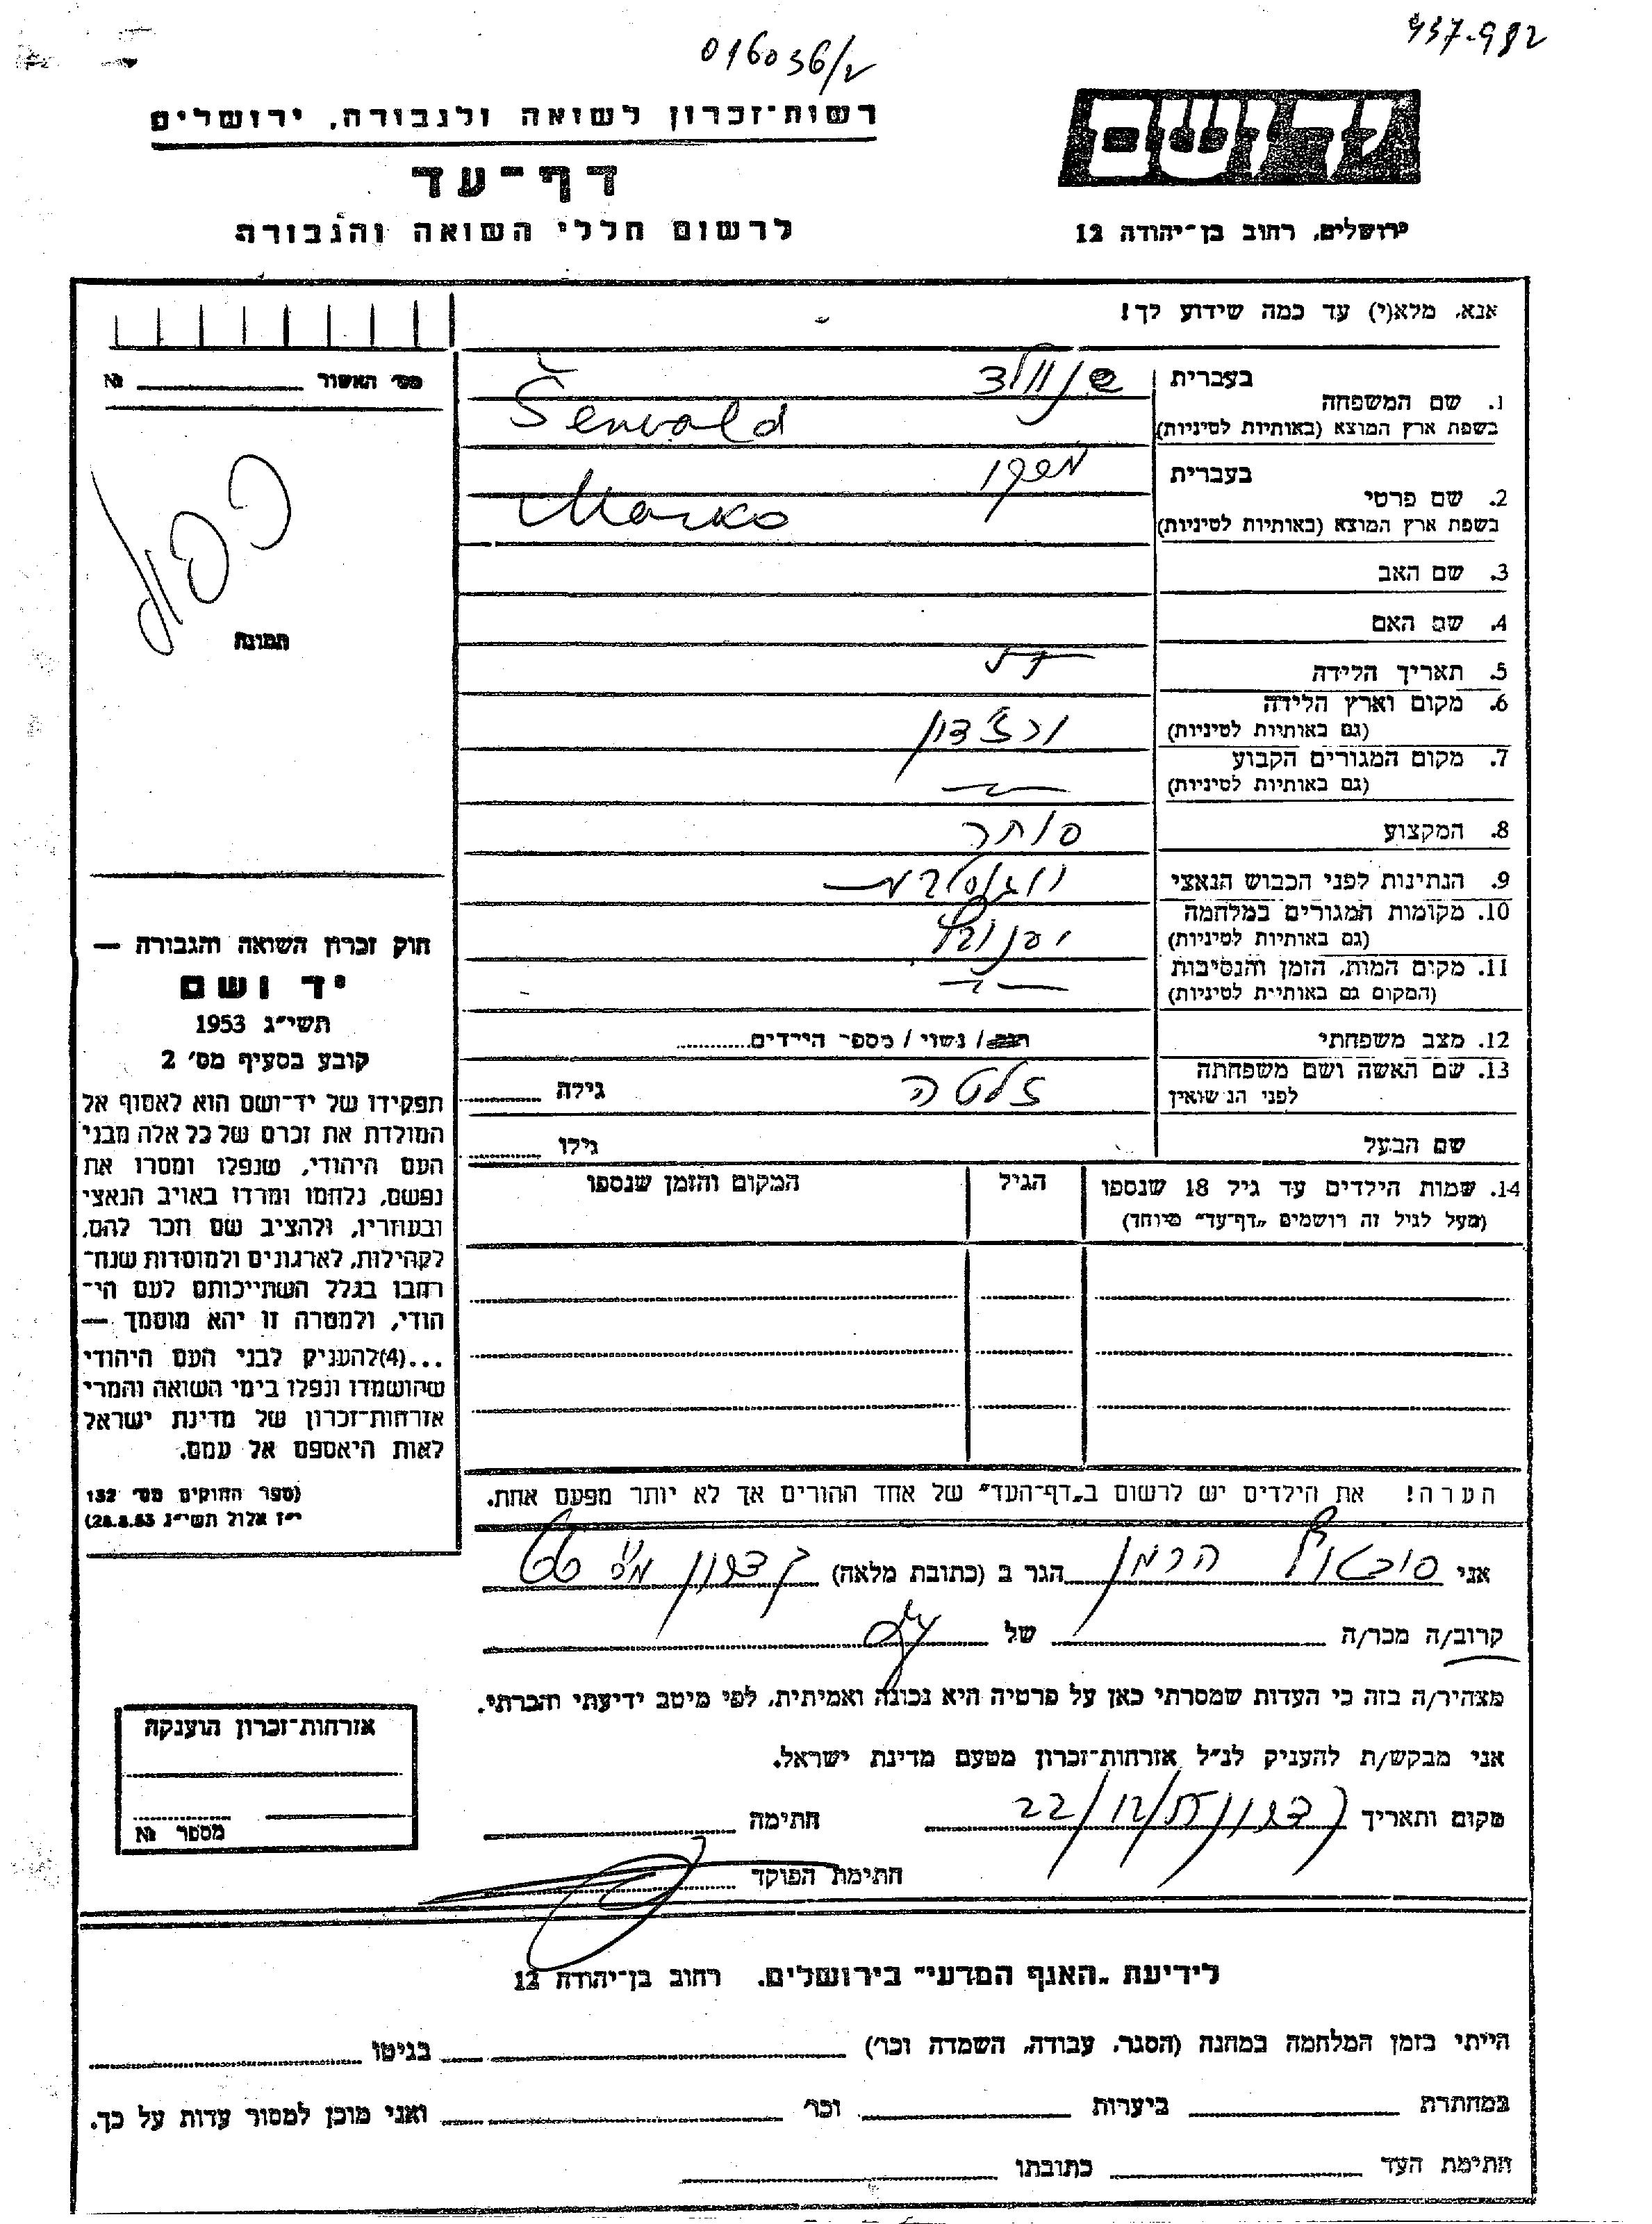 016036/2
437.982
רשות־זכרון לשואה ולגבורה, ירושלים
דף־עד
לרשום חללי השואה והגבורה
יד ושם
ירושלים, רחוב בן־יהודה 12
אנא, מלא(י) עד כמה שידוע לך!
מס׳ האשור №
בעברית שנוולד
1. שם המשפחה
בשפת ארץ המוצא (באותיות לטיניות) Šenvald
בעברית מרקו
2. שם פרטי
בשפת ארץ המוצא (באותיות לטיניות) Marko
3. שם האב
4. שם האם
תמונה
5. תאריך הלידה
6. מקום וארץ הלידה
(גם באותיות לטיניות)
7. מקום המגורים הקבוע
(גם באותיות לטיניות)
8. המקצוע סוחר
9. הנתינות לפני הכבוש הנאצי
10. מקומות המגורים במלחמה
(גם באותיות לטיניות)
11. מקום המות, הזמן והנסיבות
(המקום גם באותיות לטיניות)
12. מצב משפחתי רווק / נשוי / מספר הילדים
13. שם האשה ושם משפחתה
לפני הנשואין זלטה גילה
שם הבעל גילו
14. שמות הילדים עד גיל 18 שנספו הגיל המקום והזמן שנספו
(מעל לגיל זה רושמים „דף־עד״ מיוחד)
חוק זכרון השואה והגבורה —
יד ושם
תשי״ג 1953
קובע בסעיף מס׳ 2
תפקידו של יד־ושם הוא לאסוף אל
המולדת את זכרם של כל אלה מבני
העם היהודי, שנפלו ומסרו את
נפשם, נלחמו ומרדו באויב הנאצי
ובעוזריו, ולהציב שם וזכר להם,
לקהילות, לארגונים ולמוסדות שנח־
רבו בגלל השתייכותם לעם הי־
הודי, ולמטרה זו יהא מוסמך —
...(4)להעניק לבני העם היהודי
שהושמדו ונפלו בימי השואה והמרי
אזרחות־זכרון של מדינת ישראל
לאות היאספם אל עמם.
(ספר החוקים מס׳ 132
י״ז אלול תשי״ג 28.8.53)
הערה! את הילדים יש לרשום ב„דף־העד״ של אחד ההורים אך לא יותר מפעם אחת.
אני הרמן הגר ב (כתובת מלאה)
קרוב/ה מכר/ה של
מצהיר/ה בזה כי העדות שמסרתי כאן על פרטיה היא נכונה ואמיתית, לפי מיטב ידיעתי והכרתי.
אני מבקש/ת להעניק לנ״ל אזרחות־זכרון מטעם מדינת ישראל.
מקום ותאריך 22/12/55 חתימה
חתימת הפוקד
אזרחות־זכרון הוענקה
מספר №
לידיעת „האגף המדעי״ בירושלים. רחוב בן־יהודה 12
הייתי בזמן המלחמה במחנה (הסגר, עבודה, השמדה וכו׳) בגיטו
במחתרת ביערות וכו׳ ואני מוכן למסור עדות על כך.
חתימת העד כתובתו